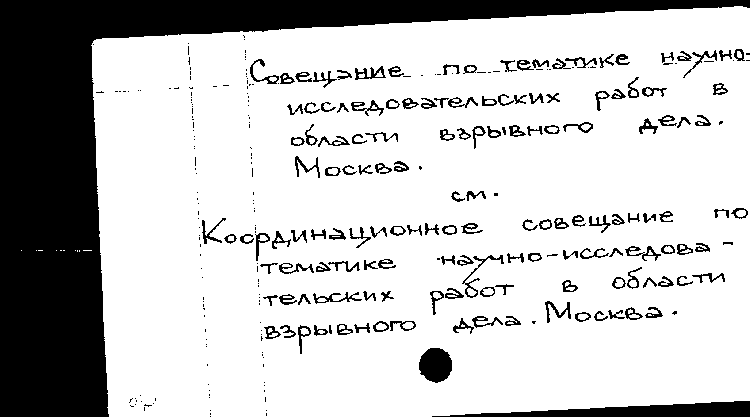 Совещание по тематике научно-
исследовательских работ в
области взрывного дела.
Москва.
см.
Координационное совещание по
тематике научно-исследова-
тельских работ в области
взрывного дела. Москва.